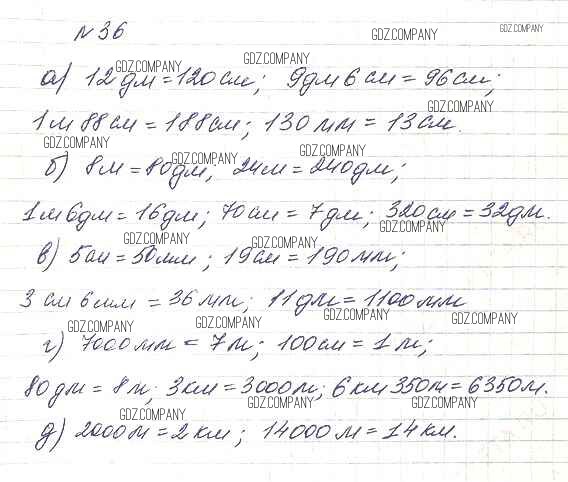 № 36
GDZ.COMPANY GDZ.COMPANY
GDZ.COMPANY GDZ.COMPANY
а) 12 дм = 120 см; 9 дм 6 см = 96 см;
GDZ.COMPANY
1 м 88 см = 188 см; 130 мм = 13 см.
GDZ.COMPANY GDZ.COMPANY GDZ.COMPANY
б) 8 м = 80 дм, 24 м = 240 дм;
1 м 6 дм = 16 дм; 70 см = 7 дм; 320 см = 32 дм.
GDZ.COMPANY GDZ.COMPANY GDZ.COMPANY
в) 5 см = 50 мм; 19 см = 190 мм;
3 см 6 мм = 36 мм; 11 дм = 1100 мм
GDZ.COMPANY GDZ.COMPANY GDZ.COMPANY GDZ.COMPANY
г) 7000 мм = 7 м; 100 см = 1 м;
80 дм = 8 м; 3 км = 3000 м; 6 км 350 м = 6350 м.
GDZ.COMPANY GDZ.COMPANY GDZ.COMPANY
д) 2000 м = 2 км; 14000 м = 14 км.